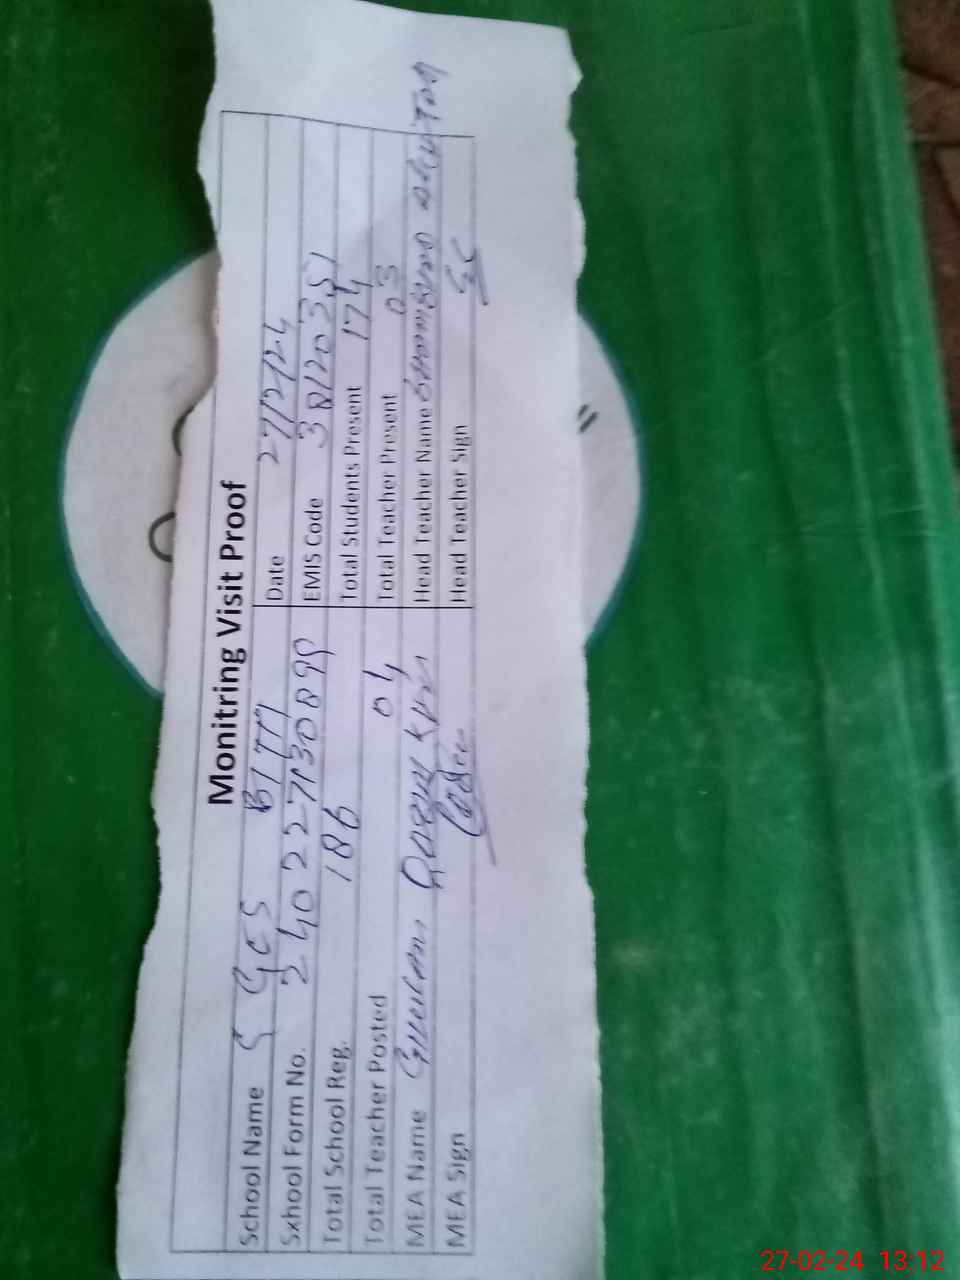 Monitring Visit Proof
School Name GES BITTI Date 27/2/24
Sxhool Form No. 24022730899 EMIS Code 38120351
Total School Reg. 186 Total Students Present 174
Total Teacher Posted 04 Total Teacher Present 03
MEA Name Head Teacher Name
MEA Sign Head Teacher Sign
27-02-24 13:12